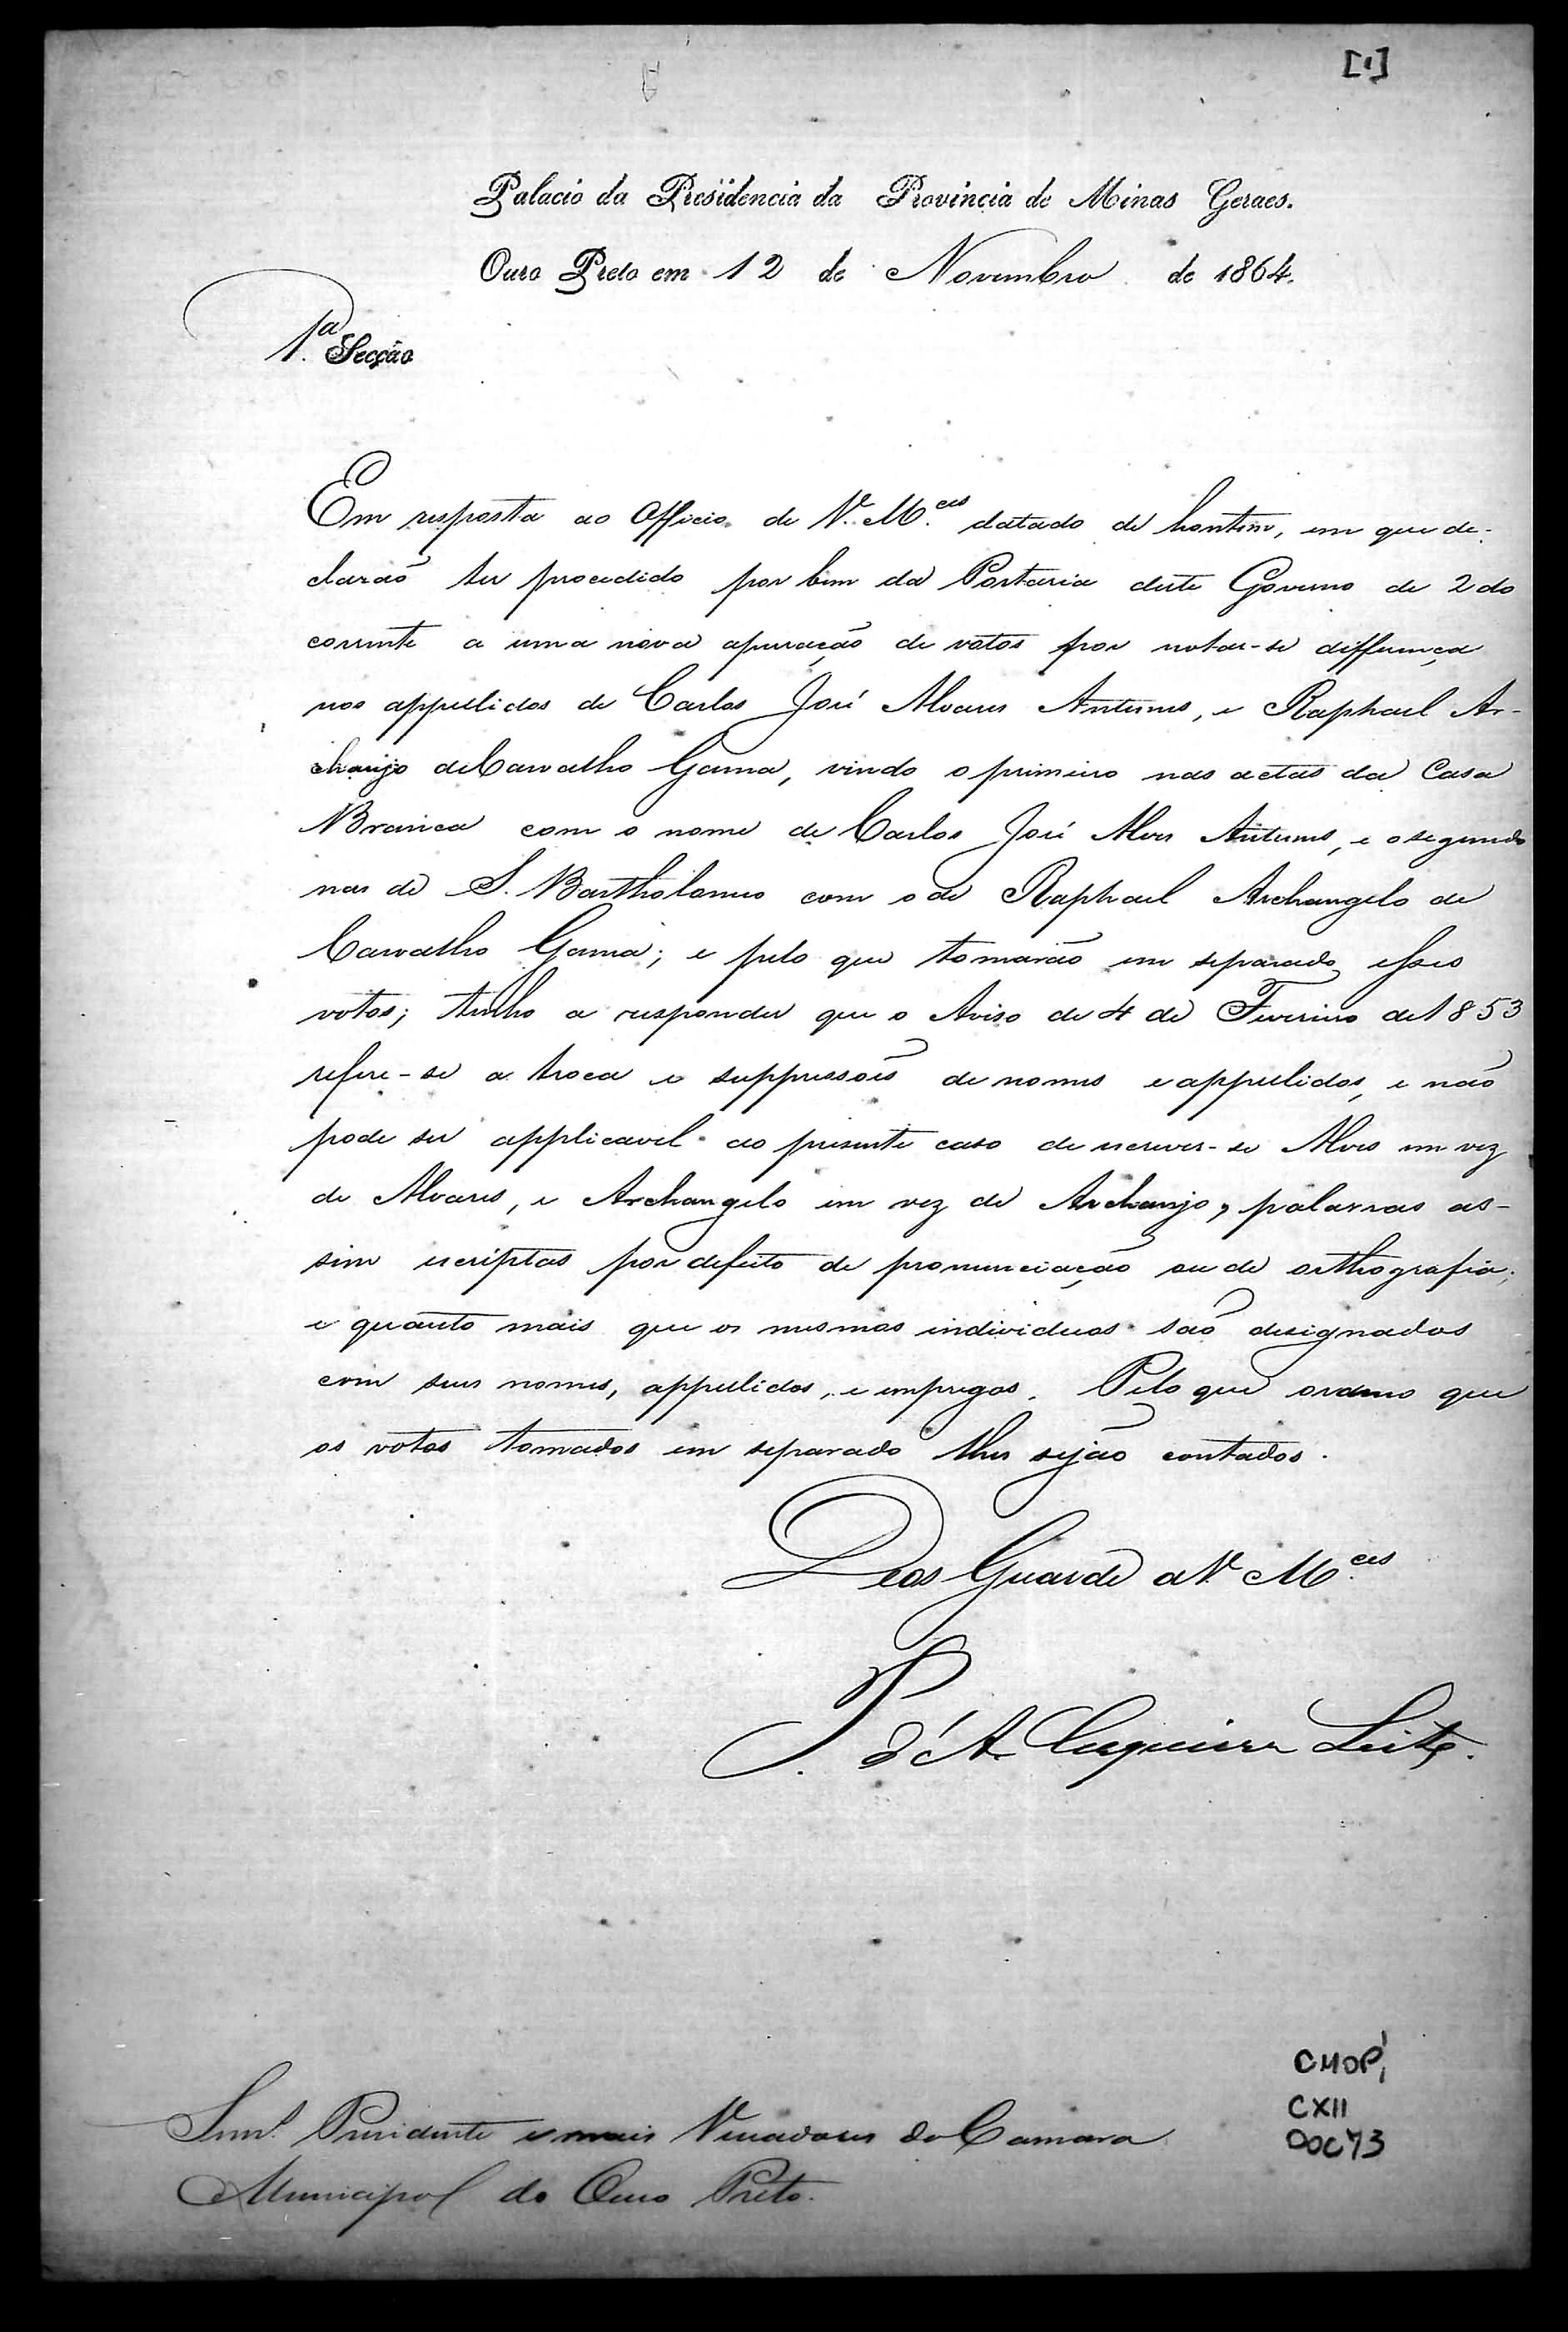 [1]
Palacio da Presidencia da Provincia de Minas Geraes.
Ouro Preto em 12 de Novembro de 1864.
1.ª Secção
Em resposta ao Officio de V. M.ces datado de hontem, em que de-
clarão ter procedido por bem da Portaria deste Governo de 2 do
corrente a uma nova apuração de votos por notar-se differença
nos appellidos de Carlos José Alvares Antunes, e Raphael Ar-
chanjo de Carvalho Gama, vindo o primeiro nas actas da Casa
Branca com o nome de Carlos José Alves Antunes, e o segundo
nas de S. Bartholomeo com o de Raphael Archangelo de
Carvalho Gama; e pelo que tomarão em separado esses
votos; tenho a responder que o Aviso de 4 de Fevereiro de 1853
refere-se a troca e suppressoẽs de nomes e appellidos, e não
pode ser applicavel ao presente caso de escrever-se Alves em vez
de Alvares, e Archangelo em vez de Archanjo, palavras as-
sim escriptas por defeito de pronunciação ou de orthografia;
e quanto mais que os mesmos individuos são designados
com seus nomes, appellidos, e empregos. Pelo que ordeno que
os votos tomados em separado lhes sejão contados.
Deos Guarde a V. M.ces
P. d'A. Cerqueira Leite.
Snrs. Presidente e mais Vereadores da Camara
Municipal do Ouro Preto.
CMOP,
CXII
DOC 73